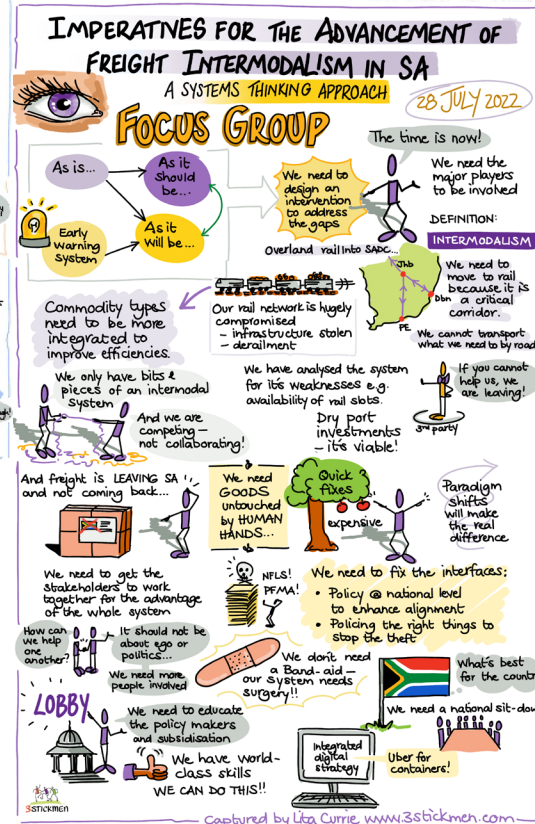 IMPERATIVES FOR THE ADVANCEMENT OF
FREIGHT INTERMODALISM IN SA
A SYSTEMS THINKING APPROACH
28 JULY 2022
FOCUS GROUP
The time is now!
As is...
As it
should
be...
We need to
design an
intervention
to address
the gaps
We need the
major players
to be involved
Early
warning
System
As it
will be...
DEFINITION:
INTERMODALISM
Overland rail into SADC...
Jhb
Dbn
PE
We need to
move to rail
because it is
a critical
corridor.
We cannot transport
what we need by road
Commodity types
need to be more
integrated to
improve efficiencies.
Our rail network is hugely
compromised
- infrastructure stolen
- derailment
We only have bits &
pieces of an intermodal
system
We have analysed the system
for its weaknesses e.g.
availability of rail slots.
If you cannot
help us, we
are leaving!
3rd party
And we are
competing -
not collaborating!
Dry port
investments
- it's viable!
And freight is LEAVING SA
and not coming back...
We need
GOODS
untouched
by HUMAN
HANDS...
Quick
fixes
expensive
Paradigm
shifts
will make
the real
difference
We need to get the
stakeholders to work
together for the advantage
of the whole system
NFLS!
PFMA!
We need to fix the interfaces:
• Policy @ national level
to enhance alignment
• Policing the right things to
stop the theft
How can
we help
one
another?
It should not be
about ego or
politics...
We need more
people involved
We don't need
a Band-aid -
our system needs
surgery!!
What's best
for the count
We need a national sit-dow
LOBBY
We need to educate
the policy makers
and subsidisation
We have world-
class skills
WE CAN DO THIS!!
Integrated
digital
strategy
Uber for
containers!
3STICKMEN
captured by Lita Currie www.3stickmen.com